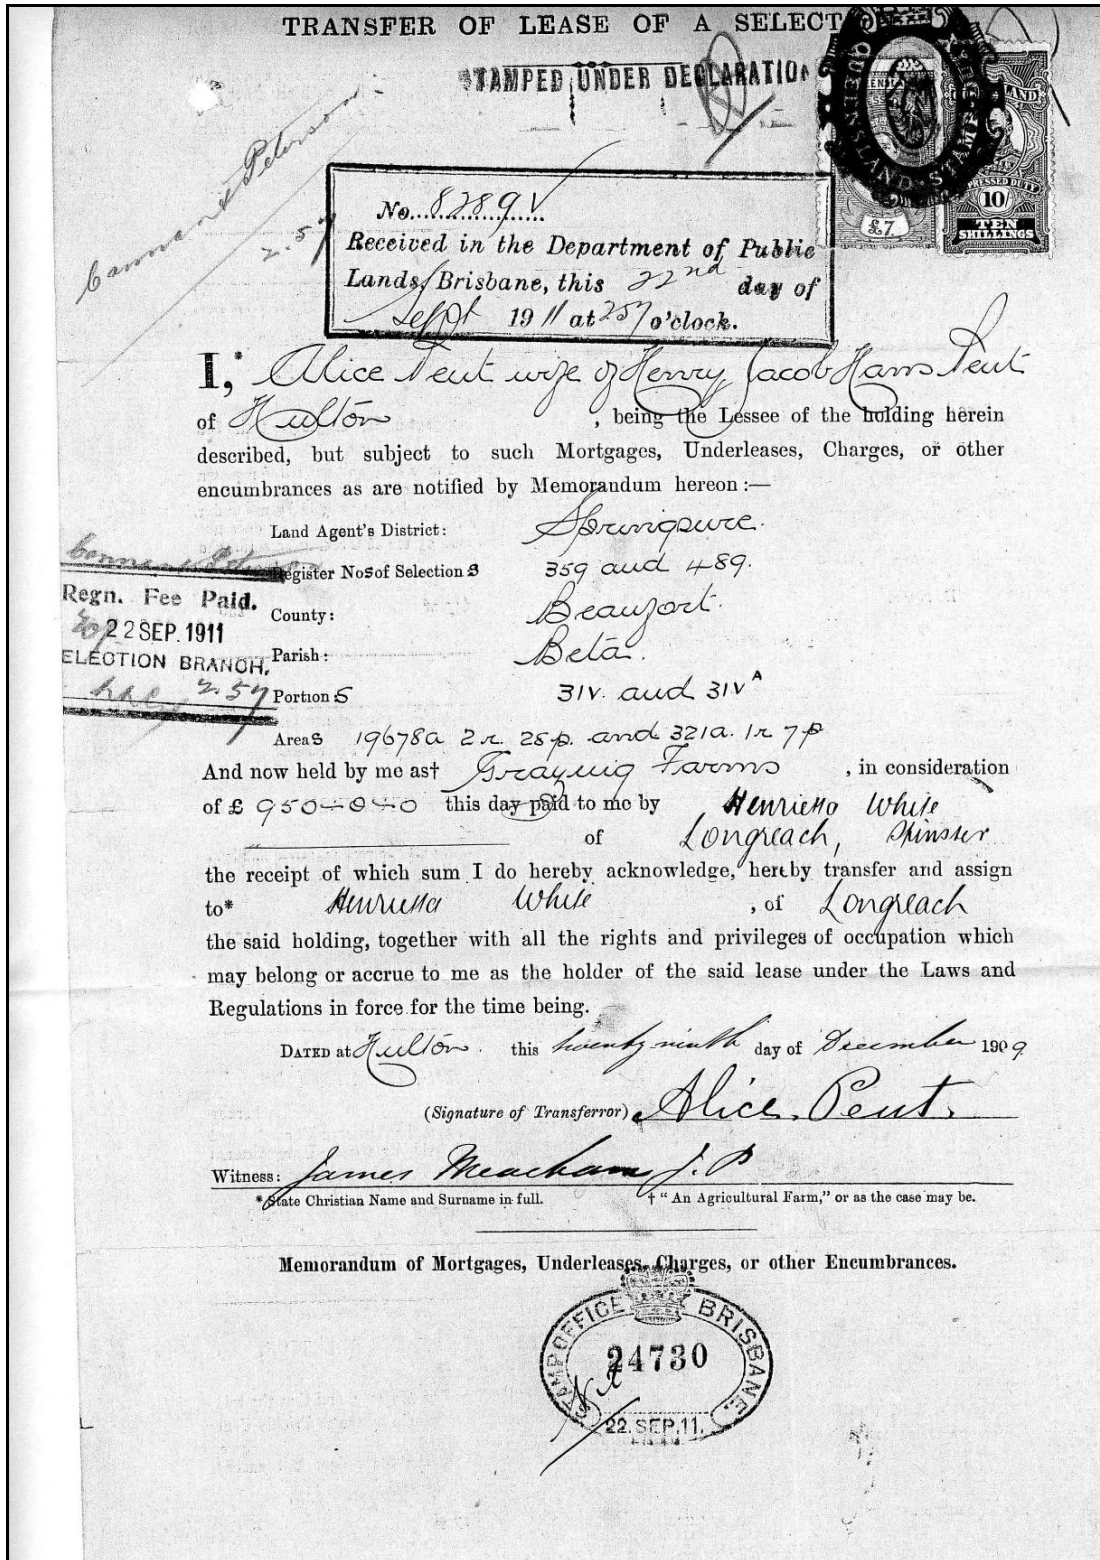 TRANSFER OF LEASE OF A SELECT
STAMPED UNDER DECLARATION
QUEENSLAND STAMP
£7
IMPRESSED DUTY
10/-
TEN
SHILLINGS
& Peterson
2.57
No. 8289V
Received in the Department of Public
Lands, Brisbane, this 22nd day of
Sept 1911 at 2.57 o'clock.
I,* Alice Pent wife of Henry Jacob Hans Pent
of Hulton , being the Lessee of the holding herein
described, but subject to such Mortgages, Underleases, Charges, or other
encumbrances as are notified by Memorandum hereon:—
Land Agent's District: Springsure.
Register Nos of Selections 359 and 489.
Regn. Fee Paid.
22 SEP. 1911
ELECTION BRANCH.
2.57
County: Beaufort.
Parish: Beta.
Portions 31v. and 31vA
Areas 19678a 2r. 25p. and 321a. 1r 7p
And now held by me as† Grazing Farms , in consideration
of £ 950-0-0 this day paid to me by Henrietta White
of Longreach, Spinster
the receipt of which sum I do hereby acknowledge, hereby transfer and assign
to* Henrietta White , of Longreach
the said holding, together with all the rights and privileges of occupation which
may belong or accrue to me as the holder of the said lease under the Laws and
Regulations in force for the time being.
DATED at Hulton. this twenty ninth day of December 1909
(Signature of Transferror) Alice Pent.
Witness: James Meacham J.P
* State Christian Name and Surname in full. † "An Agricultural Farm," or as the case may be.
Memorandum of Mortgages, Underleases, Charges, or other Encumbrances.
STAMP OFFICE BRISBANE.
24730
22.SEP.11.